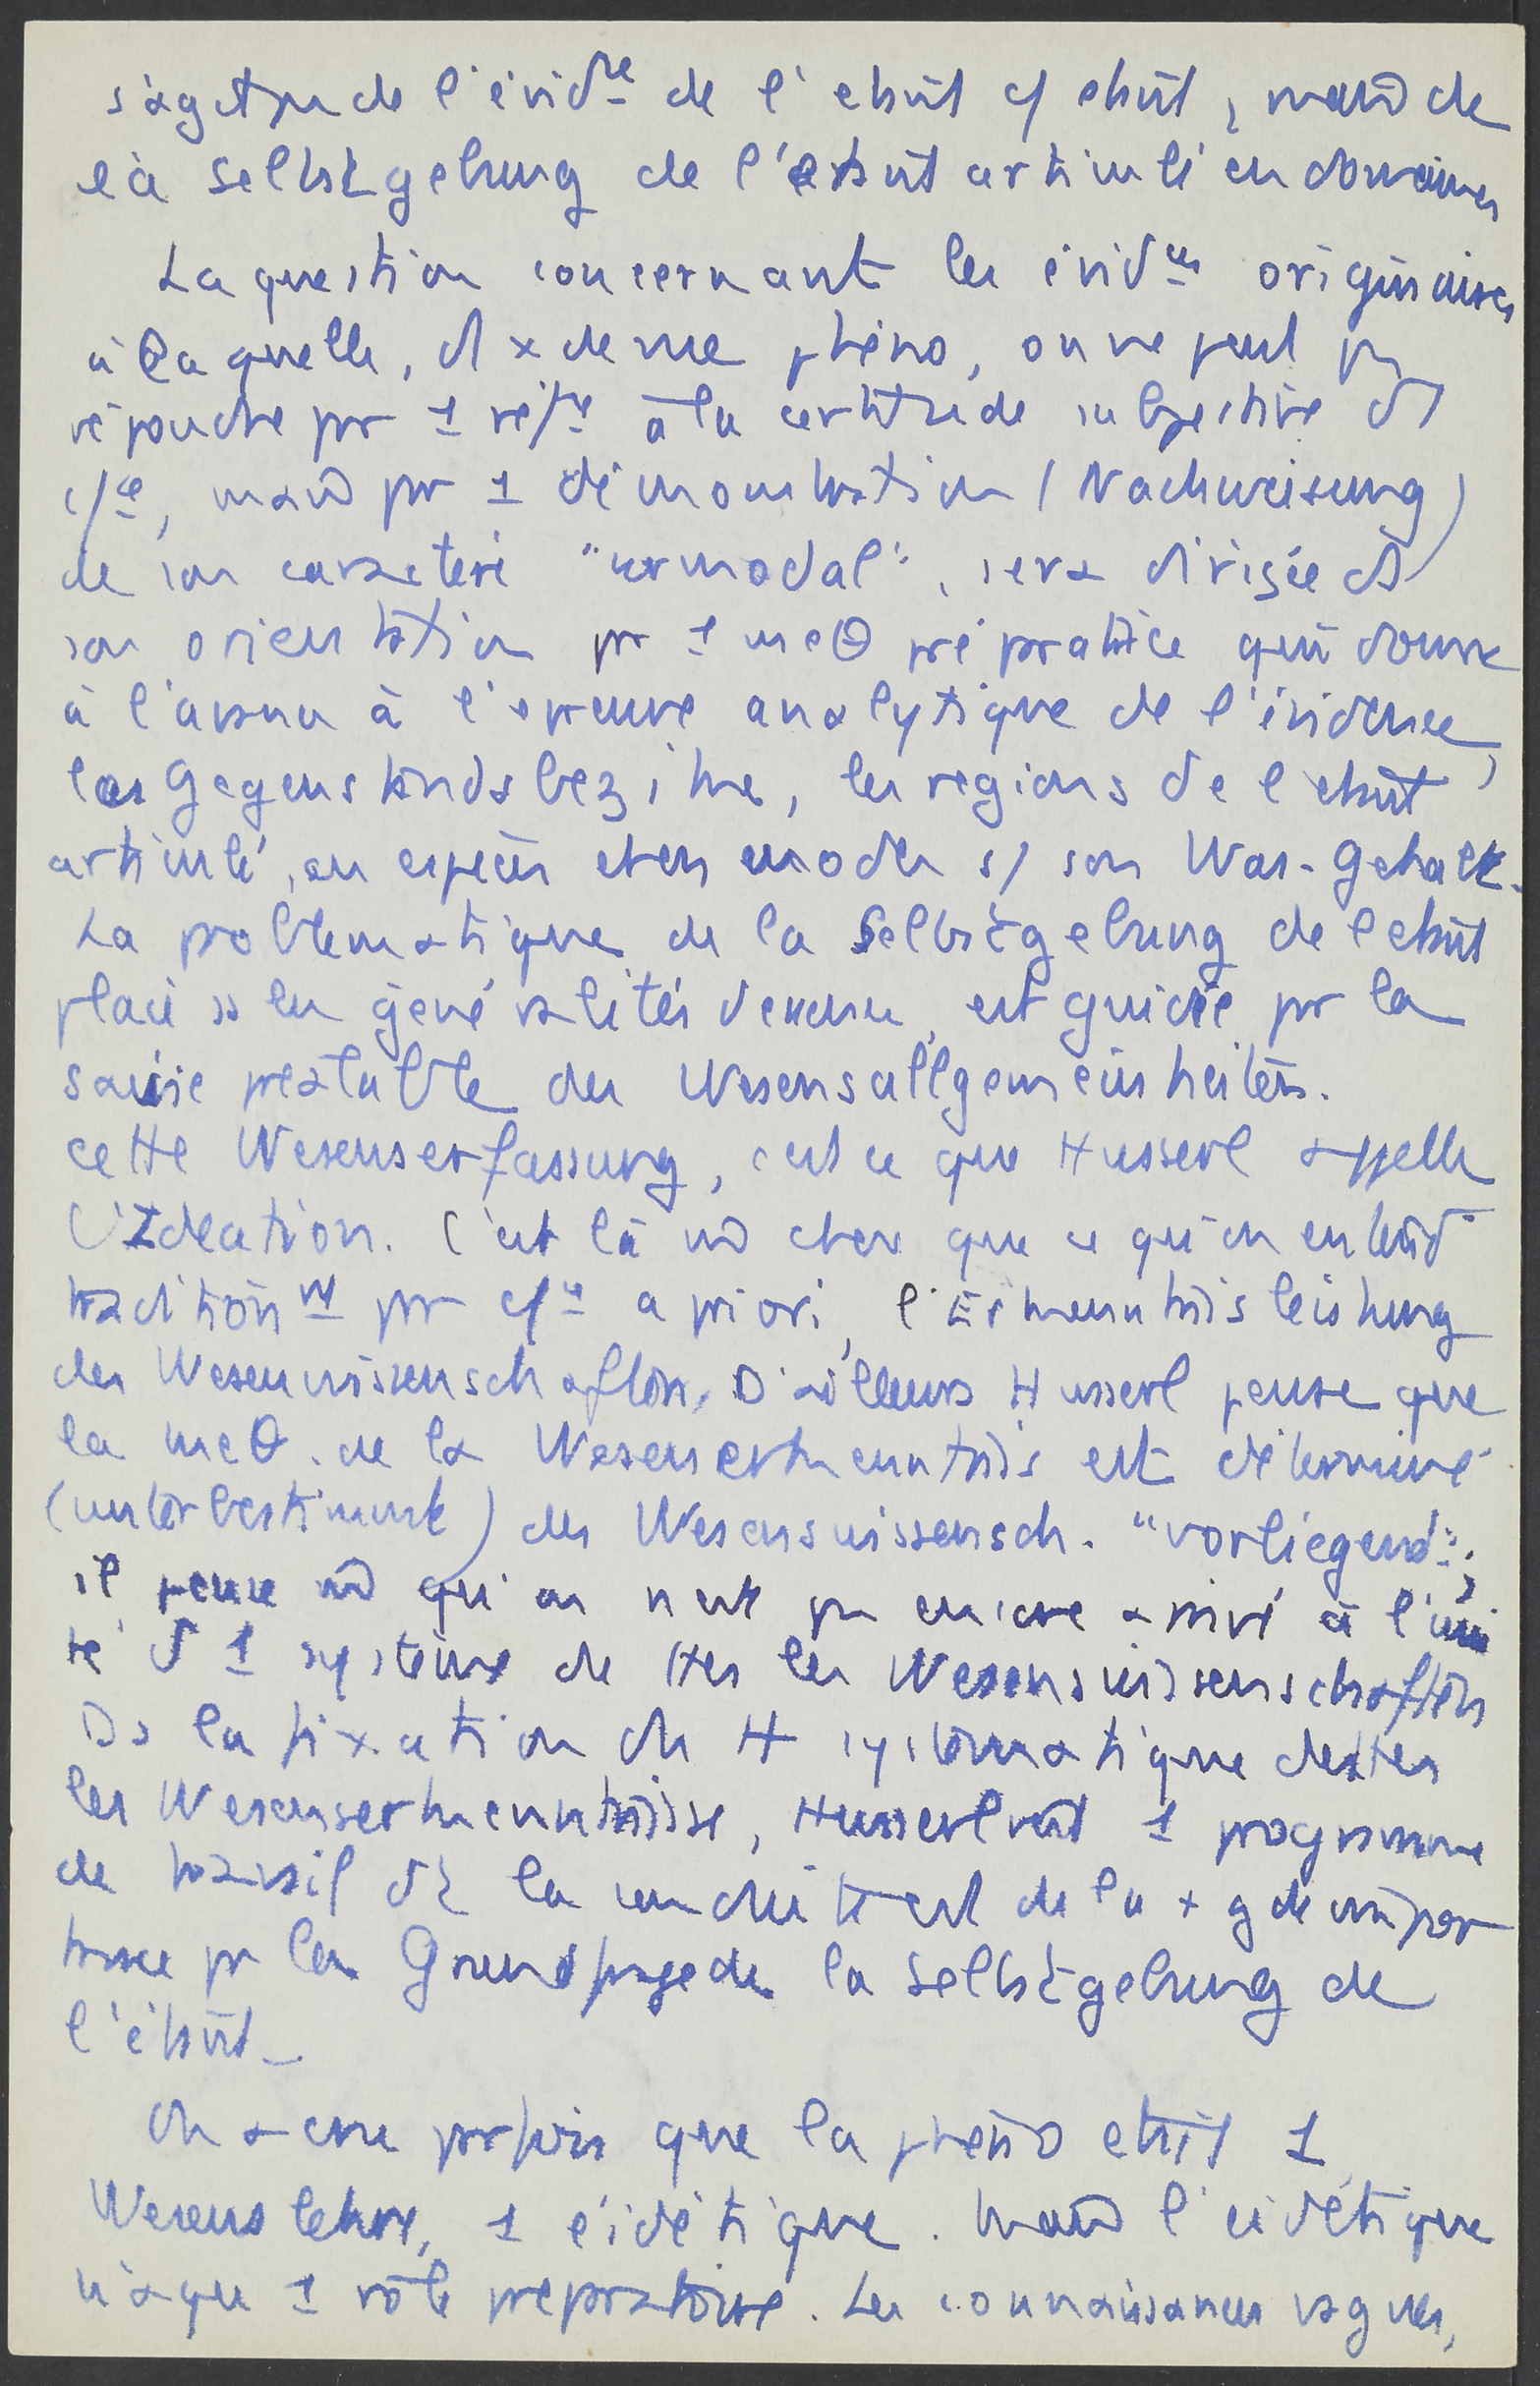 s'agit pu de l'évidce de l'étant c/ étant, mais de
la Selbstgebung de l'étant articulé en domaines
La question concernant les évidces originaires
à laquelle, d x de vue phéno, on ne peut pas
répondre pr 1 réfce à la certitude subjective d
c/ce, mais pr 1 démonstration (Nachweisung)
de son caractère "urmodal", sera dirigée ds
son orientation pr 1 meθ préparatrice qui donne
à l'avance à l'épreuve analytique de l'évidence,
les Gegenstandsbezirke, les régions de l'étant
articulé, en espèces et en modes s/ son Was-Gehalt.
La problématique de la Selbstgebung de l'étant
placé ss les généralités, est guidée pr la
saisie préalable des Wesensallgemeinheiten.
cette Wesenserfassung, c'est ce que Husserl appelle
l'Idéation. C'est là autre chose que ce qu'on entend
traditionnt pr c/ce a priori, l'Erkenntnisleistung
des Wesenswissenschaften. D'ailleurs Husserl pense que
la meθ. de la Wesenserkenntnis est déterminé
(unterbestimmt) des Wesenswissensch. "vorliegend";
il pense qu'on n'est pas encore arrivé à l'uni
té d 1 système de ttes les Wesenswissenschaften
Ds la fixation systématique de ttes
les Wesenserkenntnisse, Husserl voit 1 programme
de travail dt la conduite est de la + gde impor
tance pr la Grundfrage de la Selbstgebung de
l'étant.
On a cru parfois que la phéno était 1
Wesenslehre, 1 eidétique. Mais l'eidétique
n'a que 1 rôle préparatoire. Les connaissances vagues,